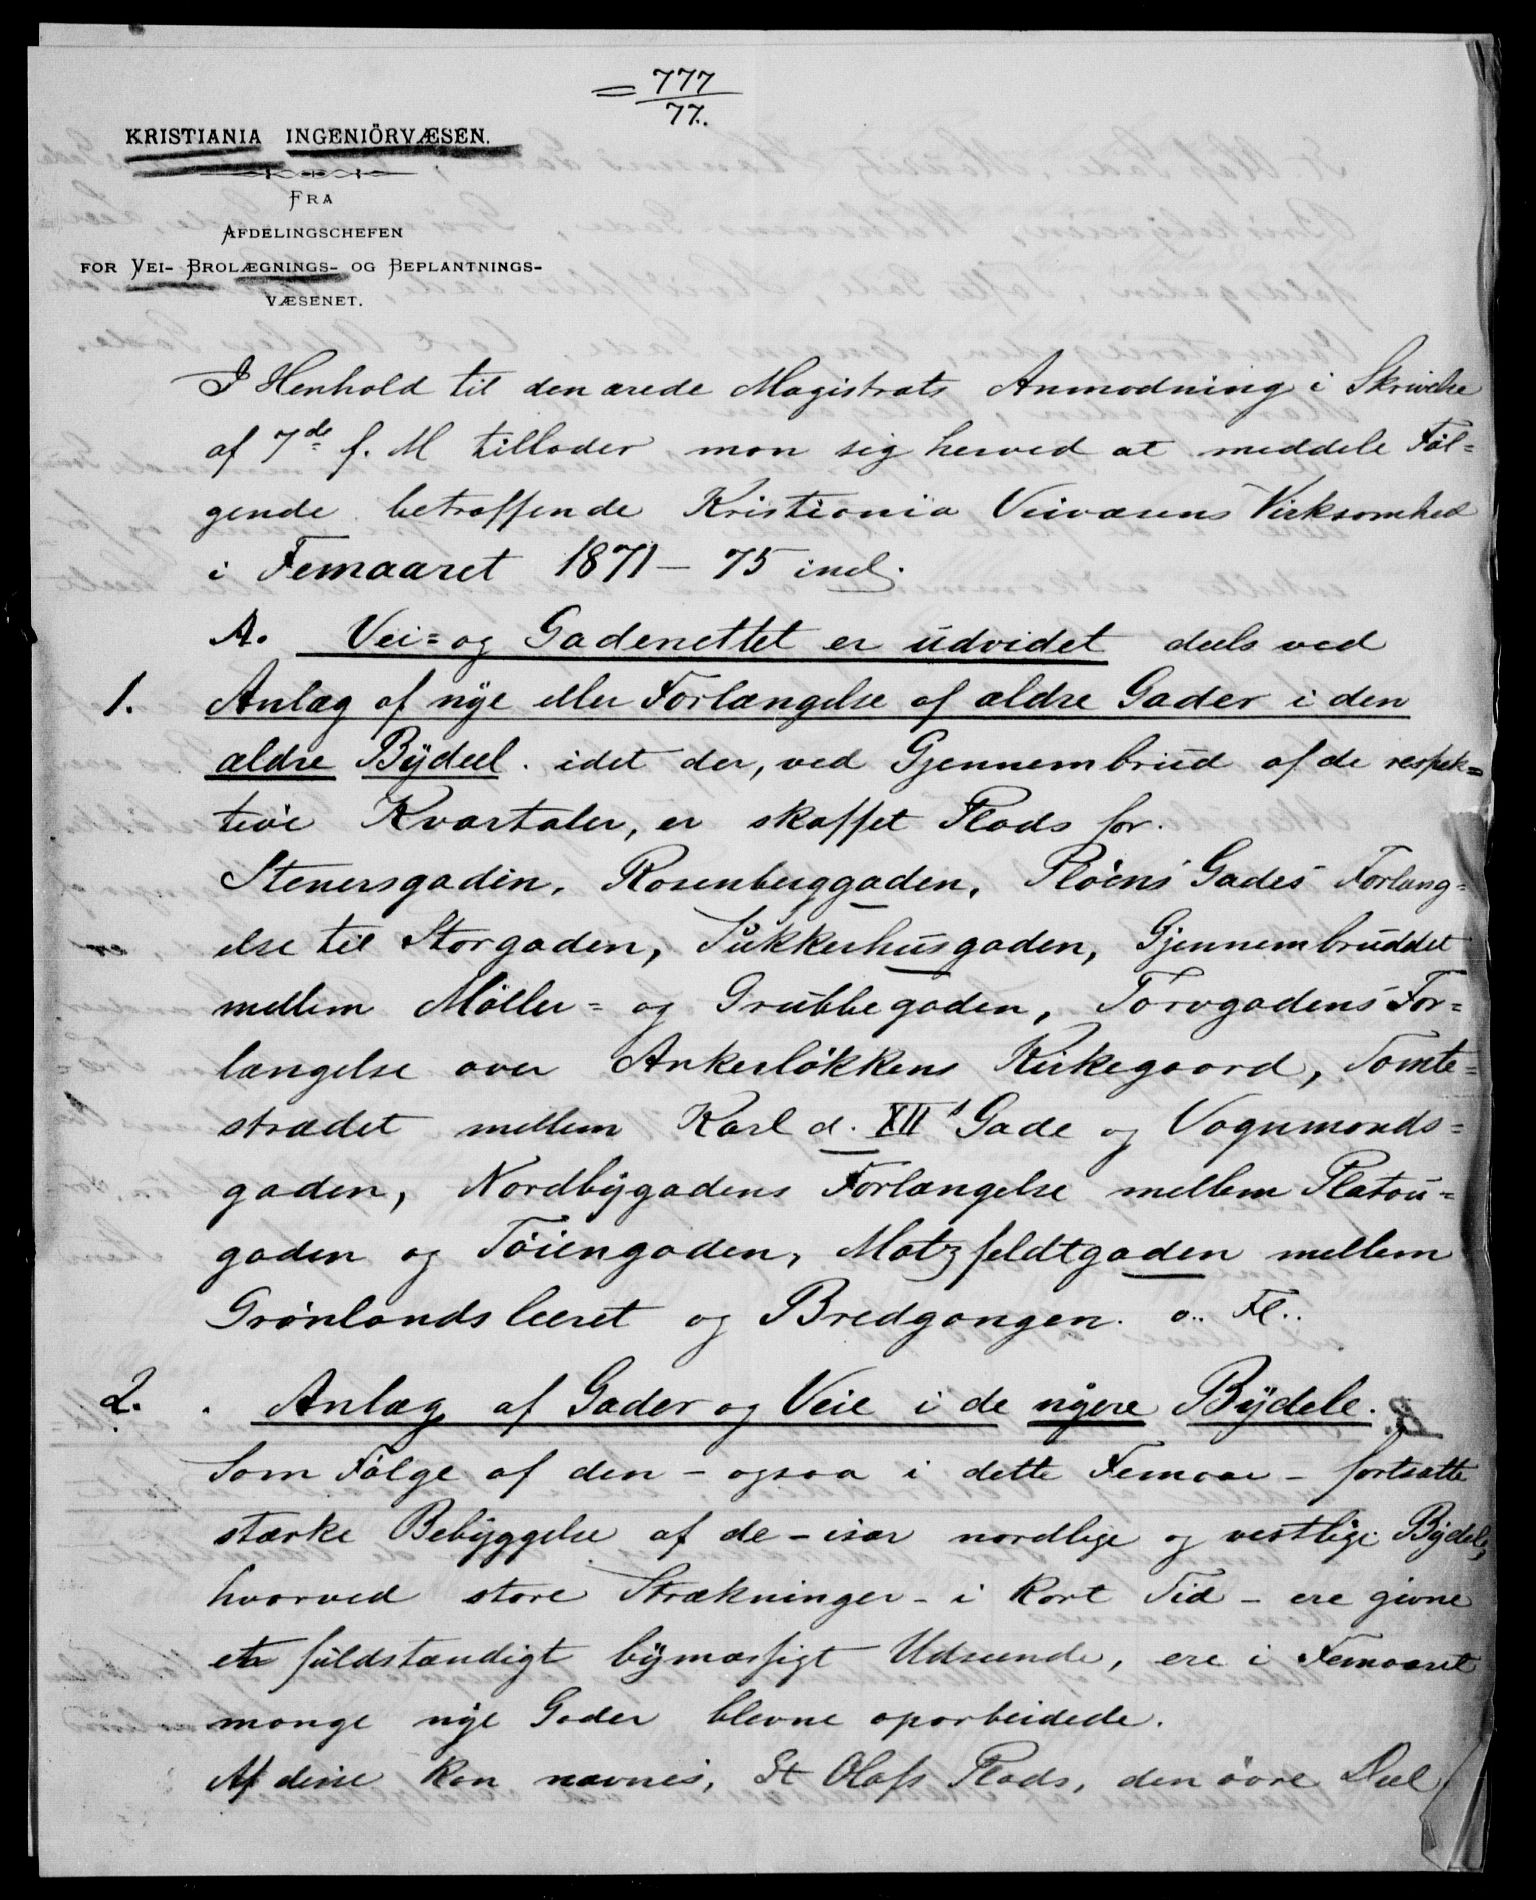 = 777
77.
KRISTIANIA INGENIÖRVÆSEN.
FRA
AFDELINGSCHEFEN
FOR VEI- BROLÆGNINGS- OG BEPLANTNINGS-
VÆSENET.
I Henhold til den ærede Magistrats Anmodning i Skrivelse
af 7de f. M tillader man sig herved at meddele Føl=
gende betræffende Kristiania Veivæsens Virksomhed
i Femaaret 1871 – 75 incl.
A. Vei= og Gadenettet er udvidet deels ved
1. Anlæg af nye eller Forlængelse af ældre Gader i den
ældre Bydeel. idet der, ved Gjennembrud af de respek=
tive Kvartaler, er skaffet Plads for.
Stenersgaden, Rosenberggaden, Pløens Gades Forlæng=
else til Storgaden, Sukkerhusgaden, Gjennembruddet
mellem Møller= og Grubbegaden, Torvgadens For=
længelse over Ankerløkkens Kirkegaard, Tomte=
strædet mellem Karl d. XIIs Gade og Vognmands=
gaden, Nordbygadens Forlængelse mellem Platou=
gaden og Tøiengaden, Motzfeldtgaden mellem
Grønlandsleret og Bredgangen. o.. Fl..
2. Anlæg af Gader og Veie i de nyere Bydele.
Som Følge af den – ogsaa i dette Femaar – fortsatte
stærke Bebyggelse af de – især nordlige og vestlige Bydele,
hvorved store Strækninger – i kort Tid – ere givne
et fuldstændigt bymæssigt Udseende, ere i Femaaret
mange nye Gader blevne oparbeidede.
Af disse kan nævnes, St Olafs Plads, den øvre Deel